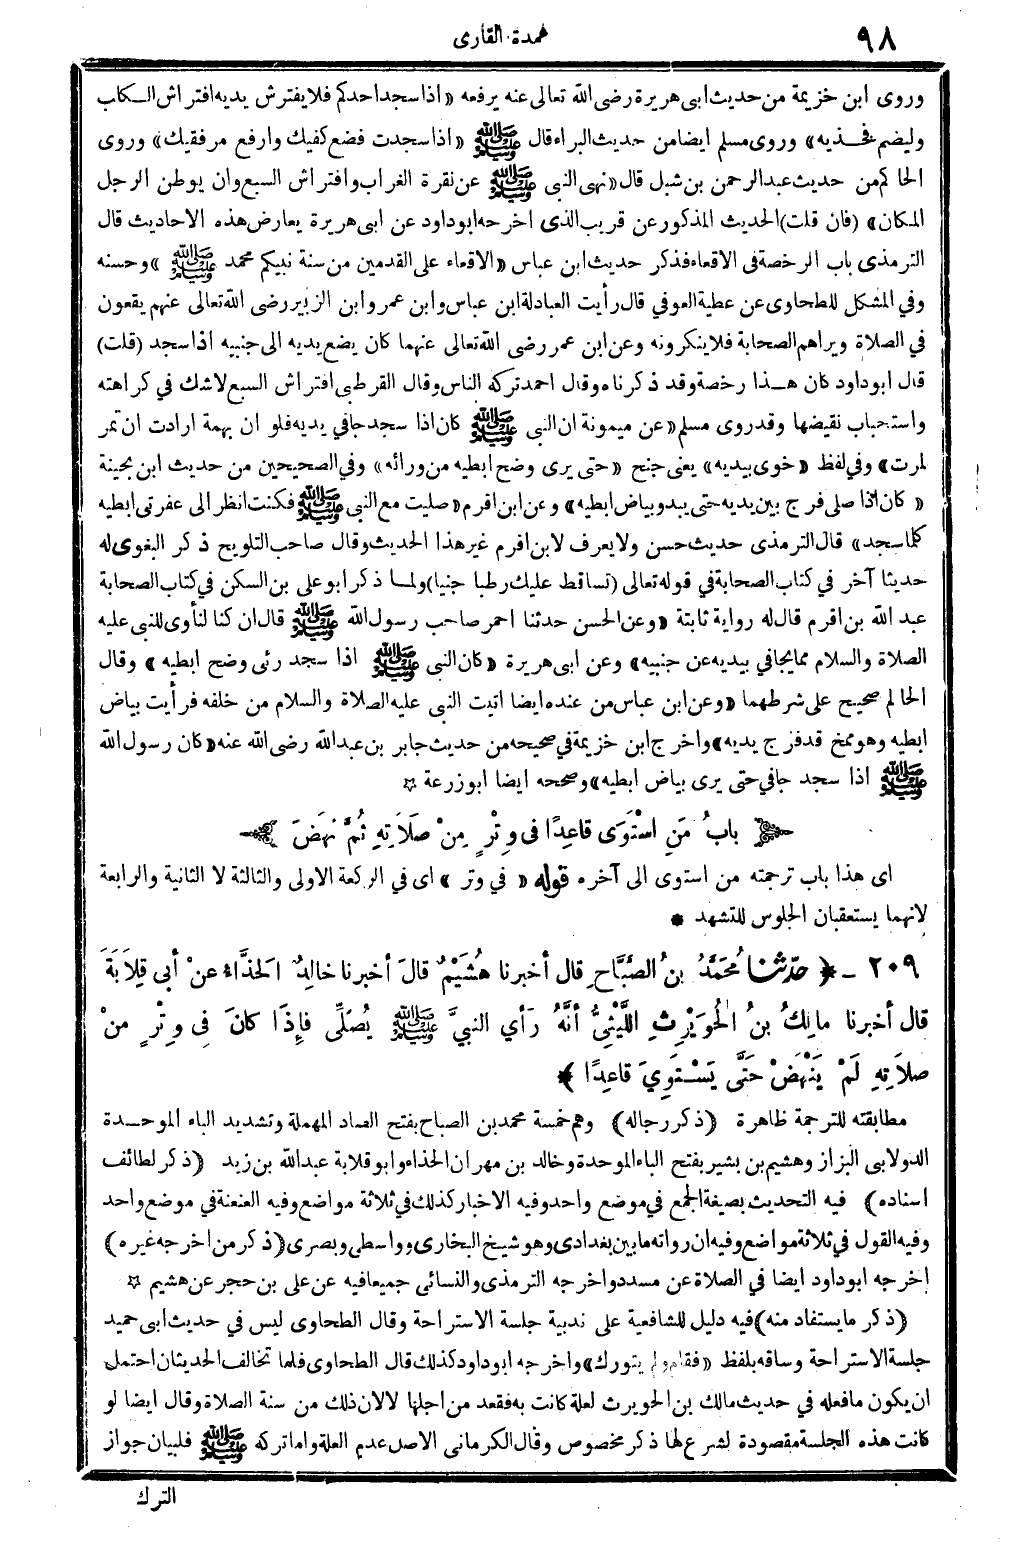 ٩٨
عمدة القارى
وروى ابن خزيمة من حديث ابى هريرة رضى الله تعالى عنه يرفعه « اذا سجد احدكم فلا يفترش يديه افتراش الكاب
وليضم فخذيه » وروى مسلم ايضا من حديث البراء قال ﷺ « اذا سجدت فضع كفيك وارفع مرفقيك » وروى
الحاكم من حديث عبد الرحمن بن شبل قال « نهى النبى ﷺ عن نقرة الغراب وافتراش السبع وان يوطن الرجل
المكان » (فان قلت) الحديث المذكور عن قريب الذى اخرجه ابو داود عن ابى هريرة يعارض هذه الاحاديث قال
الترمذى باب الرخصة فى الاقعاء فذكر حديث ابن عباس « الاقعاء على القدمين من سنة نبيكم محمد ﷺ » وحسنه
وفي المشكل للطحاوى عن عطية العوفي قال رأيت العبادلة ابن عباس وابن عمر وابن الزبير رضى الله تعالى عنهم يقعون
في الصلاة ويراهم الصحابة فلا ينكرونه وعن ابن عمر رضى الله تعالى عنهما كان يضع يديه الى جنبيه اذا سجد (قلت)
قال ابو داود كان هــذا رخصة وقد ذكرناه وقال احمد تركه الناس وقال القرطبى افتراش السبع لاشك في كراهته
واستحباب نقيضها وقدروى مسلم « عن ميمونة ان النبى ﷺ كان اذا سجد جافي يديه فلو ان بهمة ارادت ان تمر
لمرت » وفي لفظ « خوى بيديه » يعنى جنح « حتى يرى وضح ابطيه من ورائه » وفي الصحيحين من حديث ابن بحينة
« كان اذا صلى فرج بين يديه حتى يبدو بياض ابطيه » وعن ابن اقرم « صليت مع النبى ﷺ فكنت انظر الى عفرتى ابطيه
كلما سجد » قال الترمذى حديث حسن ولا يعرف لابن اقرم غير هذا الحديث وقال صاحب التلويح ذكر البغوى له
حديثا آخر في كتاب الصحابة في قوله تعالى (تساقط عليك رطبا جنيا) ولمــا ذكر ابو على بن السكن في كتاب الصحابة
عبد الله بن اقرم قال له رواية ثابتة « وعن الحسن حدثنا احمر صاحب رسول الله ﷺ قال ان كنا لنأوى للنبى عليه
الصلاة والسلام مما يجافي بيديه عن جنبيه » وعن ابى هريرة « كان النبى ﷺ اذا سجد رئى وضح ابطيه » وقال
الحاكم صحيح على شرطهما « وعن ابن عباس من عنده ايضا اتيت النبى عليه الصلاة والسلام من خلفه فرأيت بياض
ابطيه وهو مجخ قد فرج يديه » واخرج ابن خزيمة في صحيحه من حديث جابر بن عبد الله رضى الله عنه « كان رسول الله
ﷺ اذا سجد جافي حتى يرى بياض ابطيه » وصححه ايضا ابو زرعة ☆
بابُ مَنِ اسْتَوَى قاعِدًا فى وِتْرٍ مِنْ صَلاَتِهِ ثُمَّ نَهَضَ
اى هذا باب ترجمته من استوى الى آخره قوله « في وتر » اى في الركعة الاولى والثالثة لا الثانية والرابعة
لانهما يستعقبان الجلوس للتشهد *
٢٠٩ - ﴿ حدّثنا مُحَمَّدُ بنُ الصَّبَّاحِ قال أخبرنا هُشَيْمٌ قالَ أخبرنا خالِدٌ الحَذَّاءُ عنْ أبى قِلاَبَةَ
قال أخبرنا مالِكُ بنُ الحُوَيْرِثِ اللَّيْثِىُّ أنَّهُ رَأي النبيَّ ﷺ يُصَلِّى فإِذَا كانَ فى وِتْرٍ منْ
صلاَتِهِ لَمْ يَنْهَضْ حَتَّى يَسْتَوِيَ قاعِدًا ﴾ *
مطابقته للترجمة ظاهرة (ذكر رجاله) وهم خمسة محمد بن الصباح بفتح الصاد المهملة وتشديد الباء الموحــدة
الدولابى البزاز وهشيم بن بشير بفتح الباء الموحدة وخالد بن مهران الحذاء وابو قلابة عبد الله بن زيد (ذكر لطائف
اسناده) فيه التحديث بصيغة الجمع في موضع واحد وفيه الاخبار كذلك في ثلاثة مواضع وفيه العنعنة في موضع واحد
وفيه القول في ثلاثة مواضع وفيه ان رواته ما بين بغدادى وهو شيخ البخارى وواسطى وبصرى (ذكر من اخرجه غيره)
اخرجه ابو داود ايضا في الصلاة عن مسدد واخرجه الترمذى والنسائى جميعا فيه عن على بن حجر عن هشيم ☆
(ذكر ما يستفاد منه) فيه دليل للشافعية على ندبية جلسة الاستراحة وقال الطحاوى ليس في حديث ابى حميد
جلسة الاستراحة وساقه بلفظ « فقام ولم يتورك » واخرجه ابو داود كذلك قال الطحاوى فلما تخالف الحديثان احتمل
ان يكون ما فعله في حديث مالك بن الحويرث لعلة كانت به فقعد من اجلها لا لان ذلك من سنة الصلاة وقال ايضا لو
كانت هذه الجلسة مقصودة لشرع لها ذكر مخصوص وقال الكرمانى الاصل عدم العلة واما تركه ﷺ فلبيان جواز
الترك